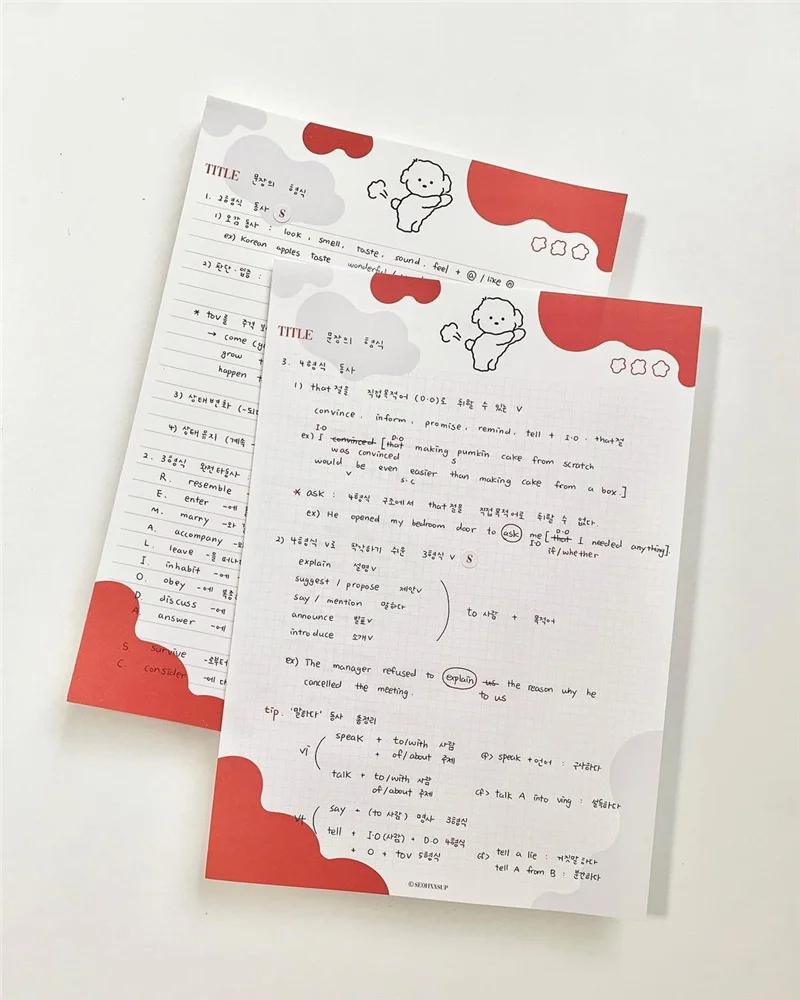 TITLE 문장의 형식
1. 2형식 동사 S
1) 오감동사 : look, smell, taste, sound, feel + ⓐ / like ⓝ
ex) Korean apples taste wonderful /
2) 판단·입증 :
* tov를 주격
→ come
grow
happen +
3) 상태변화 (-되다
4) 상태유지 (계속 -
2. 3형식 완전타동사
R. resemble
E. enter -에
M. marry -와
A. accompany -와
L. leave -를 떠나
I. inhabit -에
O. obey -에 복종
D. discuss -에
A. answer -에
S. survive -로부터
C. consider -에 대
TITLE 문장의 형식
3. 4형식 동사
1) that절을 직접목적어 (D.O)로 취할 수 있는 V
convince, inform, promise, remind, tell + I.O. that절
I.O D.O
ex) I convinced [that making pumkin cake from scratch
was convinced S
would be even easier than making cake from a box.]
V S.C
* ask : 4형식 구조에서 that절을 직접목적어로 취할 수 없다.
ex) He opened my bedroom door to ask me [that I needed anything].
I.O D.O if/whether
2) 4형식 V로 착각하기 쉬운 3형식 V S
explain 설명V
suggest / propose 제안V
say / mention 말하다
announce 발표V
introduce 소개V
to 사람 + 목적어
ex) The manager refused to explain us the reason why he
to us
cancelled the meeting.
tip. '말하다' 동사 총정리
vi
speak + to/with 사람
+ of/about 주제 cf> speak +언어 : 구사하다
talk + to/with 사람
of/about 주제 cf> talk A into ving : 설득하다
vt
say + (to 사람) 명사 3형식
tell + I.O(사람) + D.O 4형식
+ O + tov 5형식 cf> tell a lie : 거짓말하다
tell A from B : 분간하다
© SEOHXXSUP